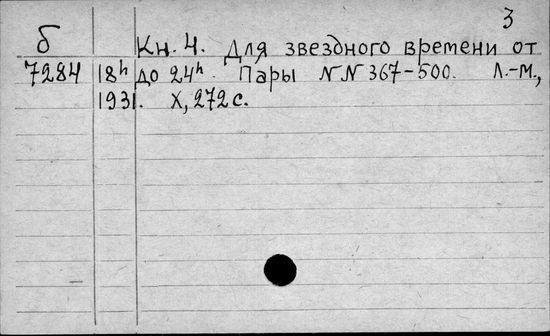 3
б Кн. 4. Для звездного времени от
7284 18h до 24h. Пары NN 367-500. Л.-М.,
1931. X, 272 с.